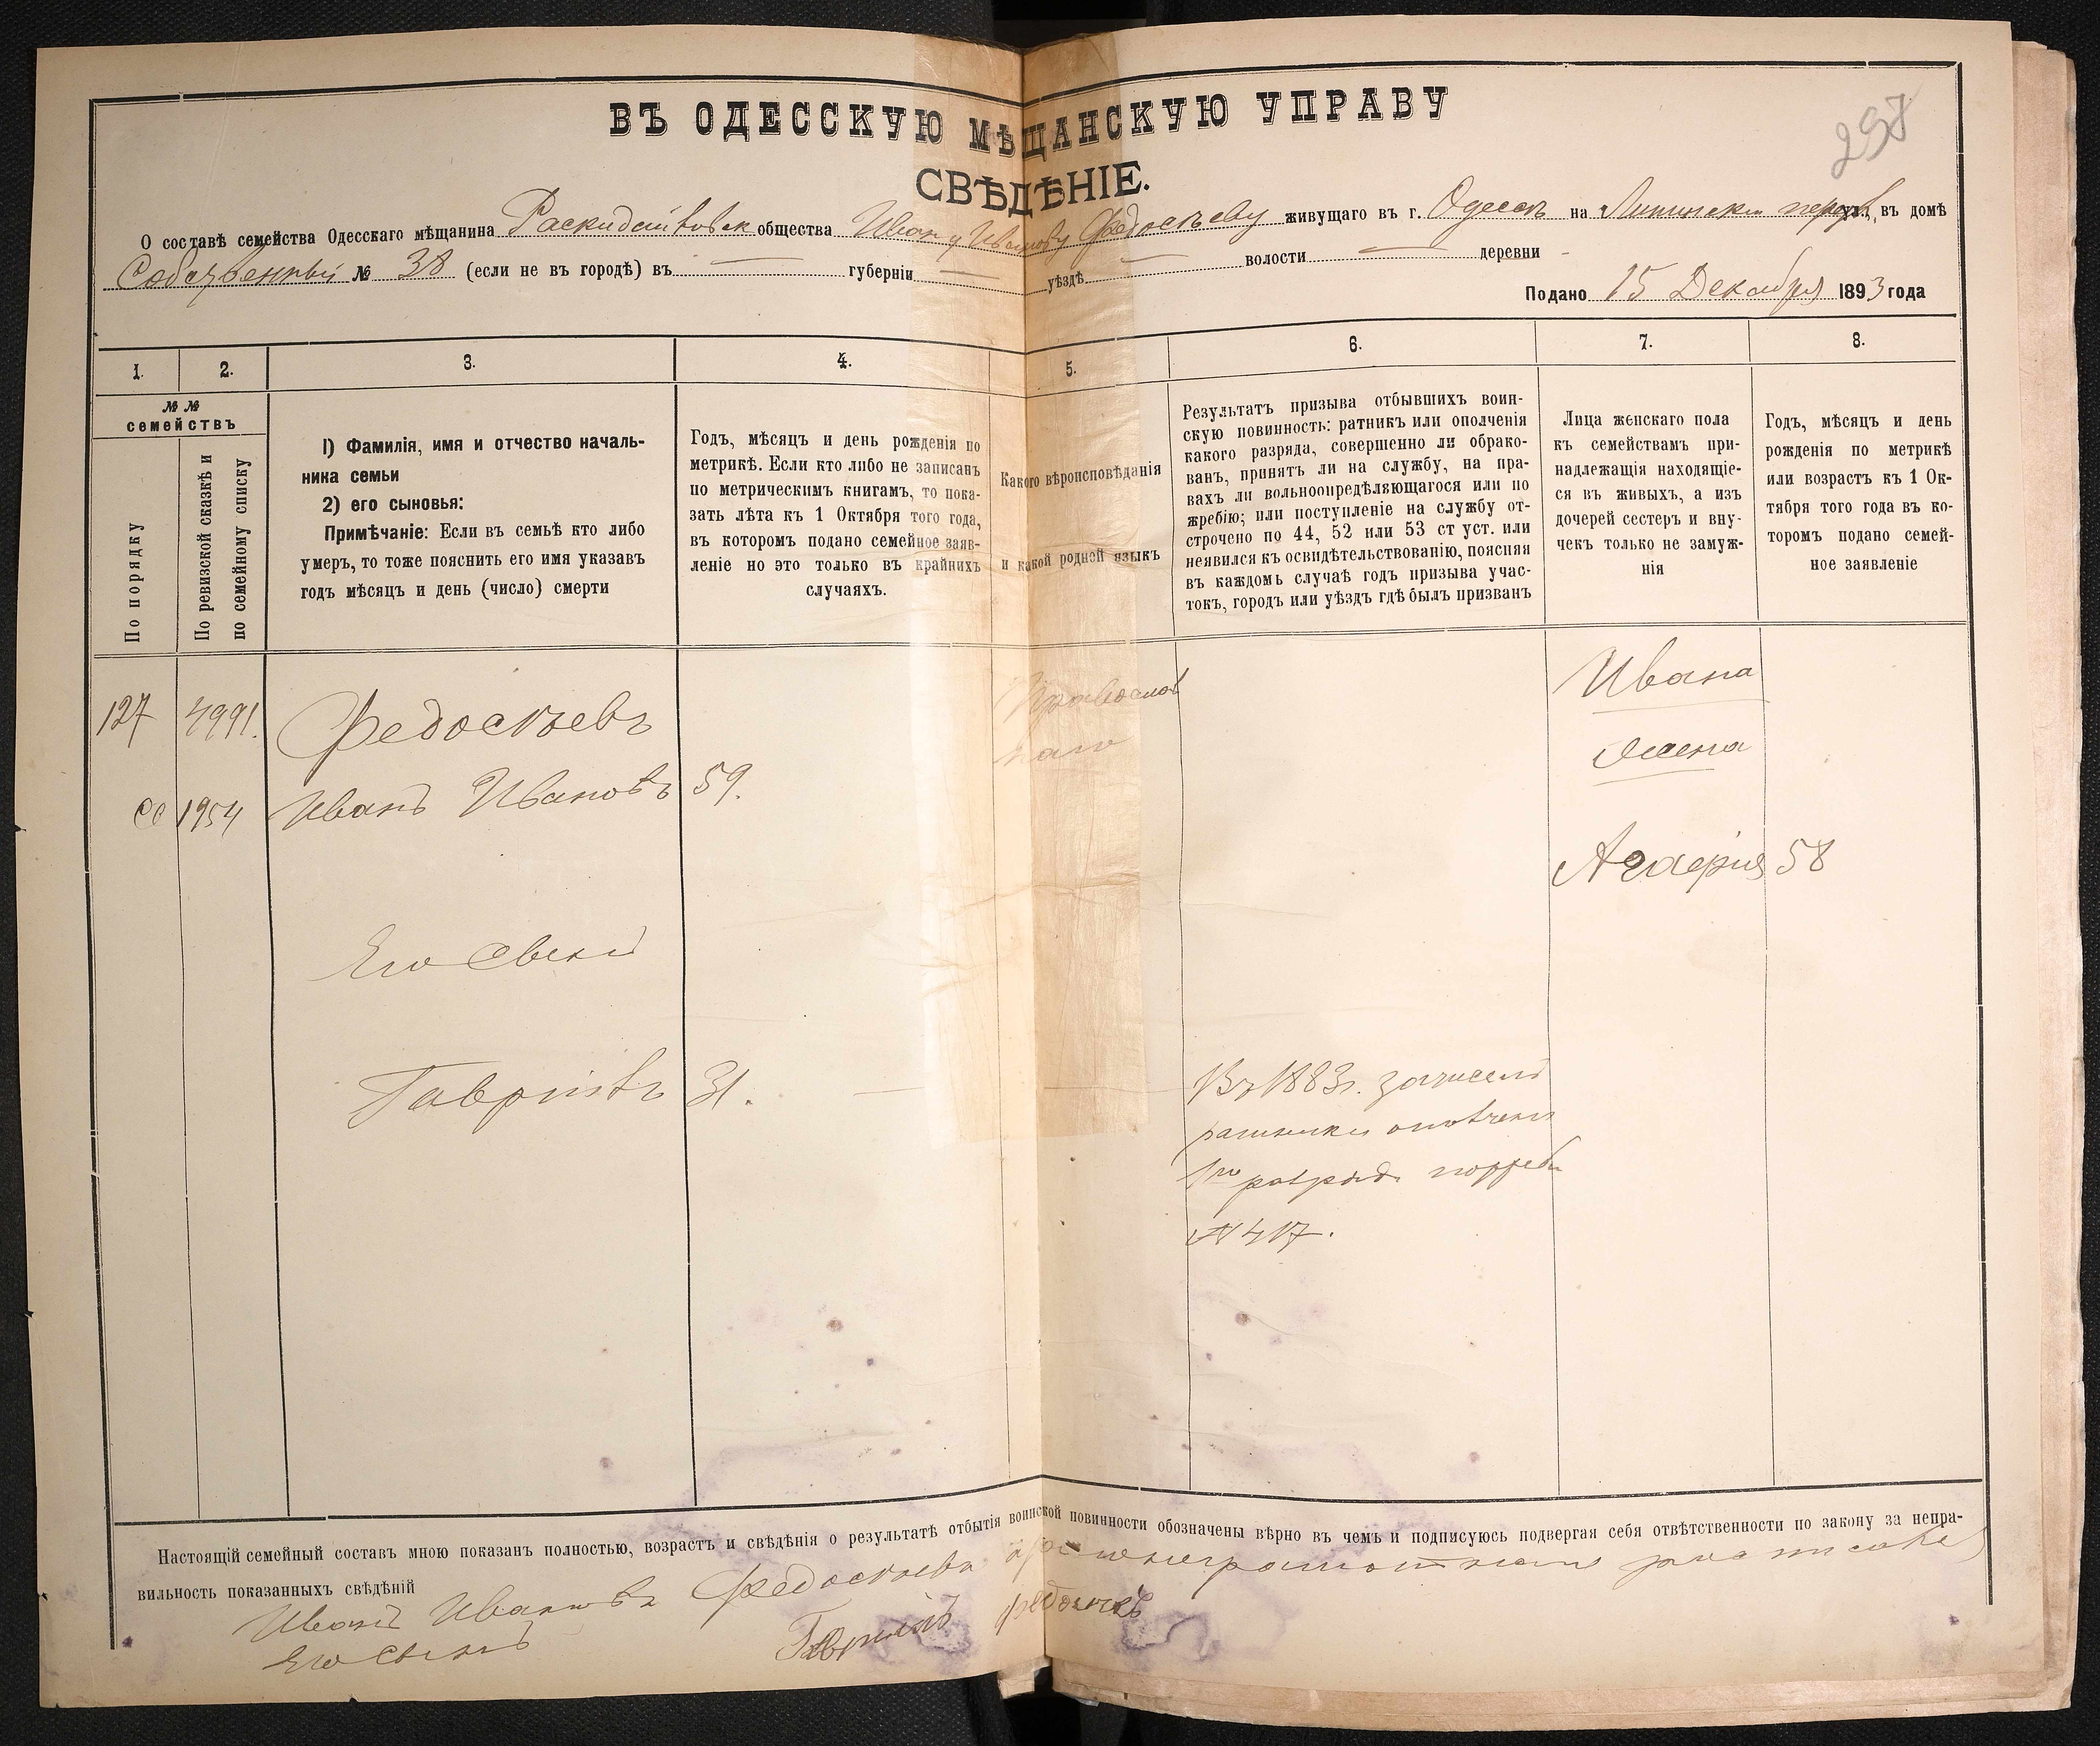 ВЪ ОДЕССКУЮ МѢЩАНСКУЮ УПРАВУ
298
СВѢДѢНІЕ.
О составѣ семейства Одесскаго мѣщанина общества Ивану Иванову Федосѣеву живущаго въ г. Одессѣ на въ домѣ
Собственный № 38 (если не въ городѣ) въ — губерніи — уѣздѣ — волости — деревни -
Подано 15 Декабря 1893 года
1. 2. 3. 4. 5. 6. 7. 8.
№ №
семействъ
По порядку
По ревизской сказкѣ и
по семейному списку
1) Фамилія, имя и отчество началь-
ника семьи
2) его сыновья:
Примѣчаніе: Если въ семьѣ кто либо
умеръ, то тоже пояснить его имя указавъ
годъ мѣсяцъ и день (число) смерти
Годъ, мѣсяцъ и день рожденія по
метрикѣ. Если кто либо не записанъ
по метрическимъ книгамъ, то пока-
зать лѣта къ 1 Октября того года,
въ которомъ подано семейное заяв-
леніе но это только въ крайнихъ
случаяхъ.
Какого вѣроисповѣданія
и какой родной языкъ
Результатъ призыва отбывшихъ воин-
скую повинность: ратникъ или ополченія
какого разряда, совершенно ли обрако-
ванъ, принятъ ли на службу, на пра-
вахъ ли вольноопредѣляющагося или по
жребію; или поступленіе на службу от-
строчено по 44, 52 или 53 ст уст. или
неявился къ освидѣтельствованію, поясняя
въ каждомъ случаѣ годъ призыва учас-
токъ, городъ или уѣздъ гдѣ былъ призванъ
Лица женскаго пола
къ семействамъ при-
надлежащія находящіе-
ся въ живыхъ, а изъ
дочерей сестеръ и вну-
чекъ только не замуж-
нія
Годъ, мѣсяцъ и день
рожденія по метрикѣ
или возрастъ къ 1 Ок-
тября того года въ ко-
торомъ подано семей-
ное заявленіе
127 4991. Федосѣевъ
Православ
наго
Ивана
жена
1954 Иванъ Ивановъ 59.
Агафія 58
Его Сынъ
Гавріилъ 31. —
Въ 1883 г. зачисленъ
ратники ополчен
1го разряда
№ 417.
Настоящій семейный составъ мною показанъ полностью, возрастъ и свѣдѣнія о результатѣ отбытія воинской повинности обозначены вѣрно въ чемъ и подписуюсь подвергая себя отвѣтственности по закону за непра-
вильность показанныхъ свѣдѣній
Иванъ Ивановъ Федосѣевъ
Его Сынъ Гавріилъ Федосѣевъ